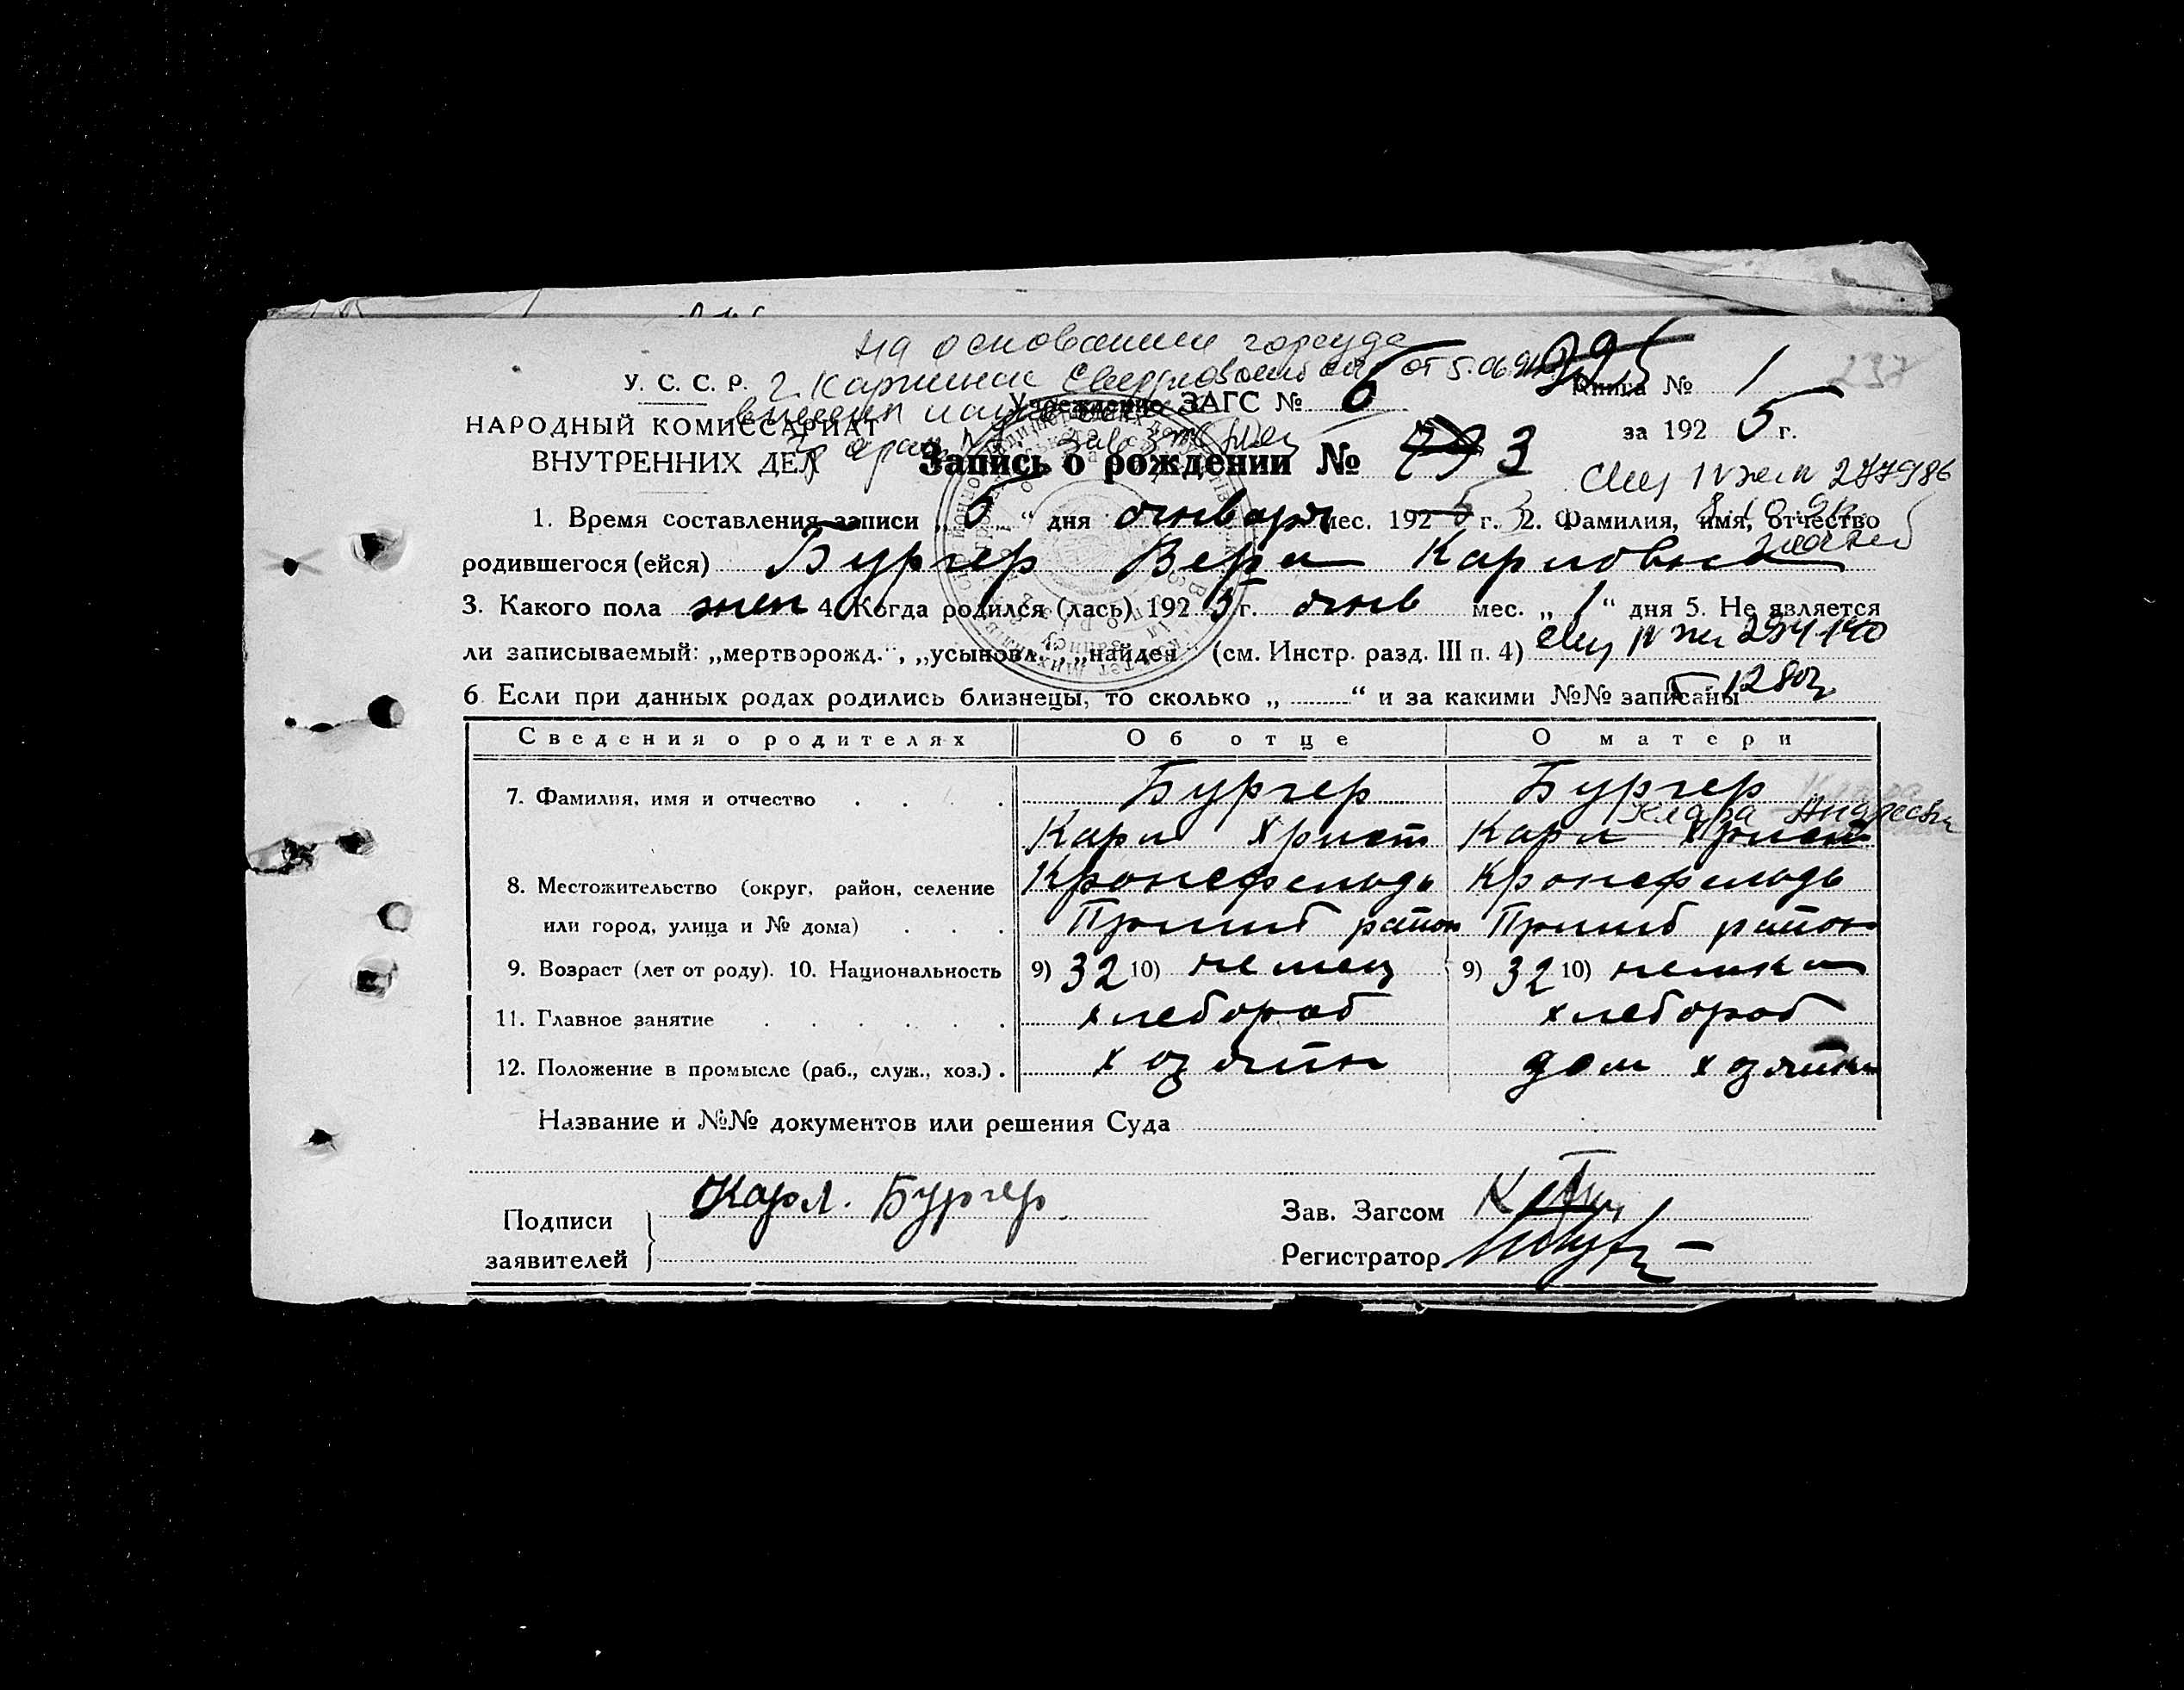 на основании горсуда
У. С. С. Р. г. Карпинск Свердловской обл от 5.06.91
Учреждение ЗАГС № 6 Книга № 1 237
НАРОДНЫЙ КОМИССАРИАТ
ВНУТРЕННИХ ДЕЛ
за 1925 г.
Запись о рождении № 3
277986
1. Время составления записи „6“ дня января мес. 1925 г. 2. Фамилия, имя, отчество
родившегося (ейся) Бургер Вера Карловна
3. Какого пола жен 4. Когда родился (лась) 1925 г. янв мес. „1“ дня 5. Не является
ли записываемый: „мертворожд.“, „усыновл.“, „найден“ (см. Инстр. разд. III п. 4)
6 Если при данных родах родились близнецы, то сколько „ “ и за какими №№ записаны
Сведения о родителях Об отце О матери
7. Фамилия, имя и отчество Бургер Бургер
Клара Андреевн
Карл Христ Карл Христ
8. Местожительство (округ, район, селение Кронсфельдь Кронсфельдь
или город, улица и № дома) Пришиб район Пришиб район
9. Возраст (лет от роду). 10. Национальность 9) 32 10) немец 9) 32 10) немка
11. Главное занятие хлебороб хлебороб
12. Положение в промысле (раб., служ., хоз.) хозяйн дом хозяйка
Название и №№ документов или решения Суда
Подписи заявителей Карл. Бургер
Зав. Загсом
Регистратор